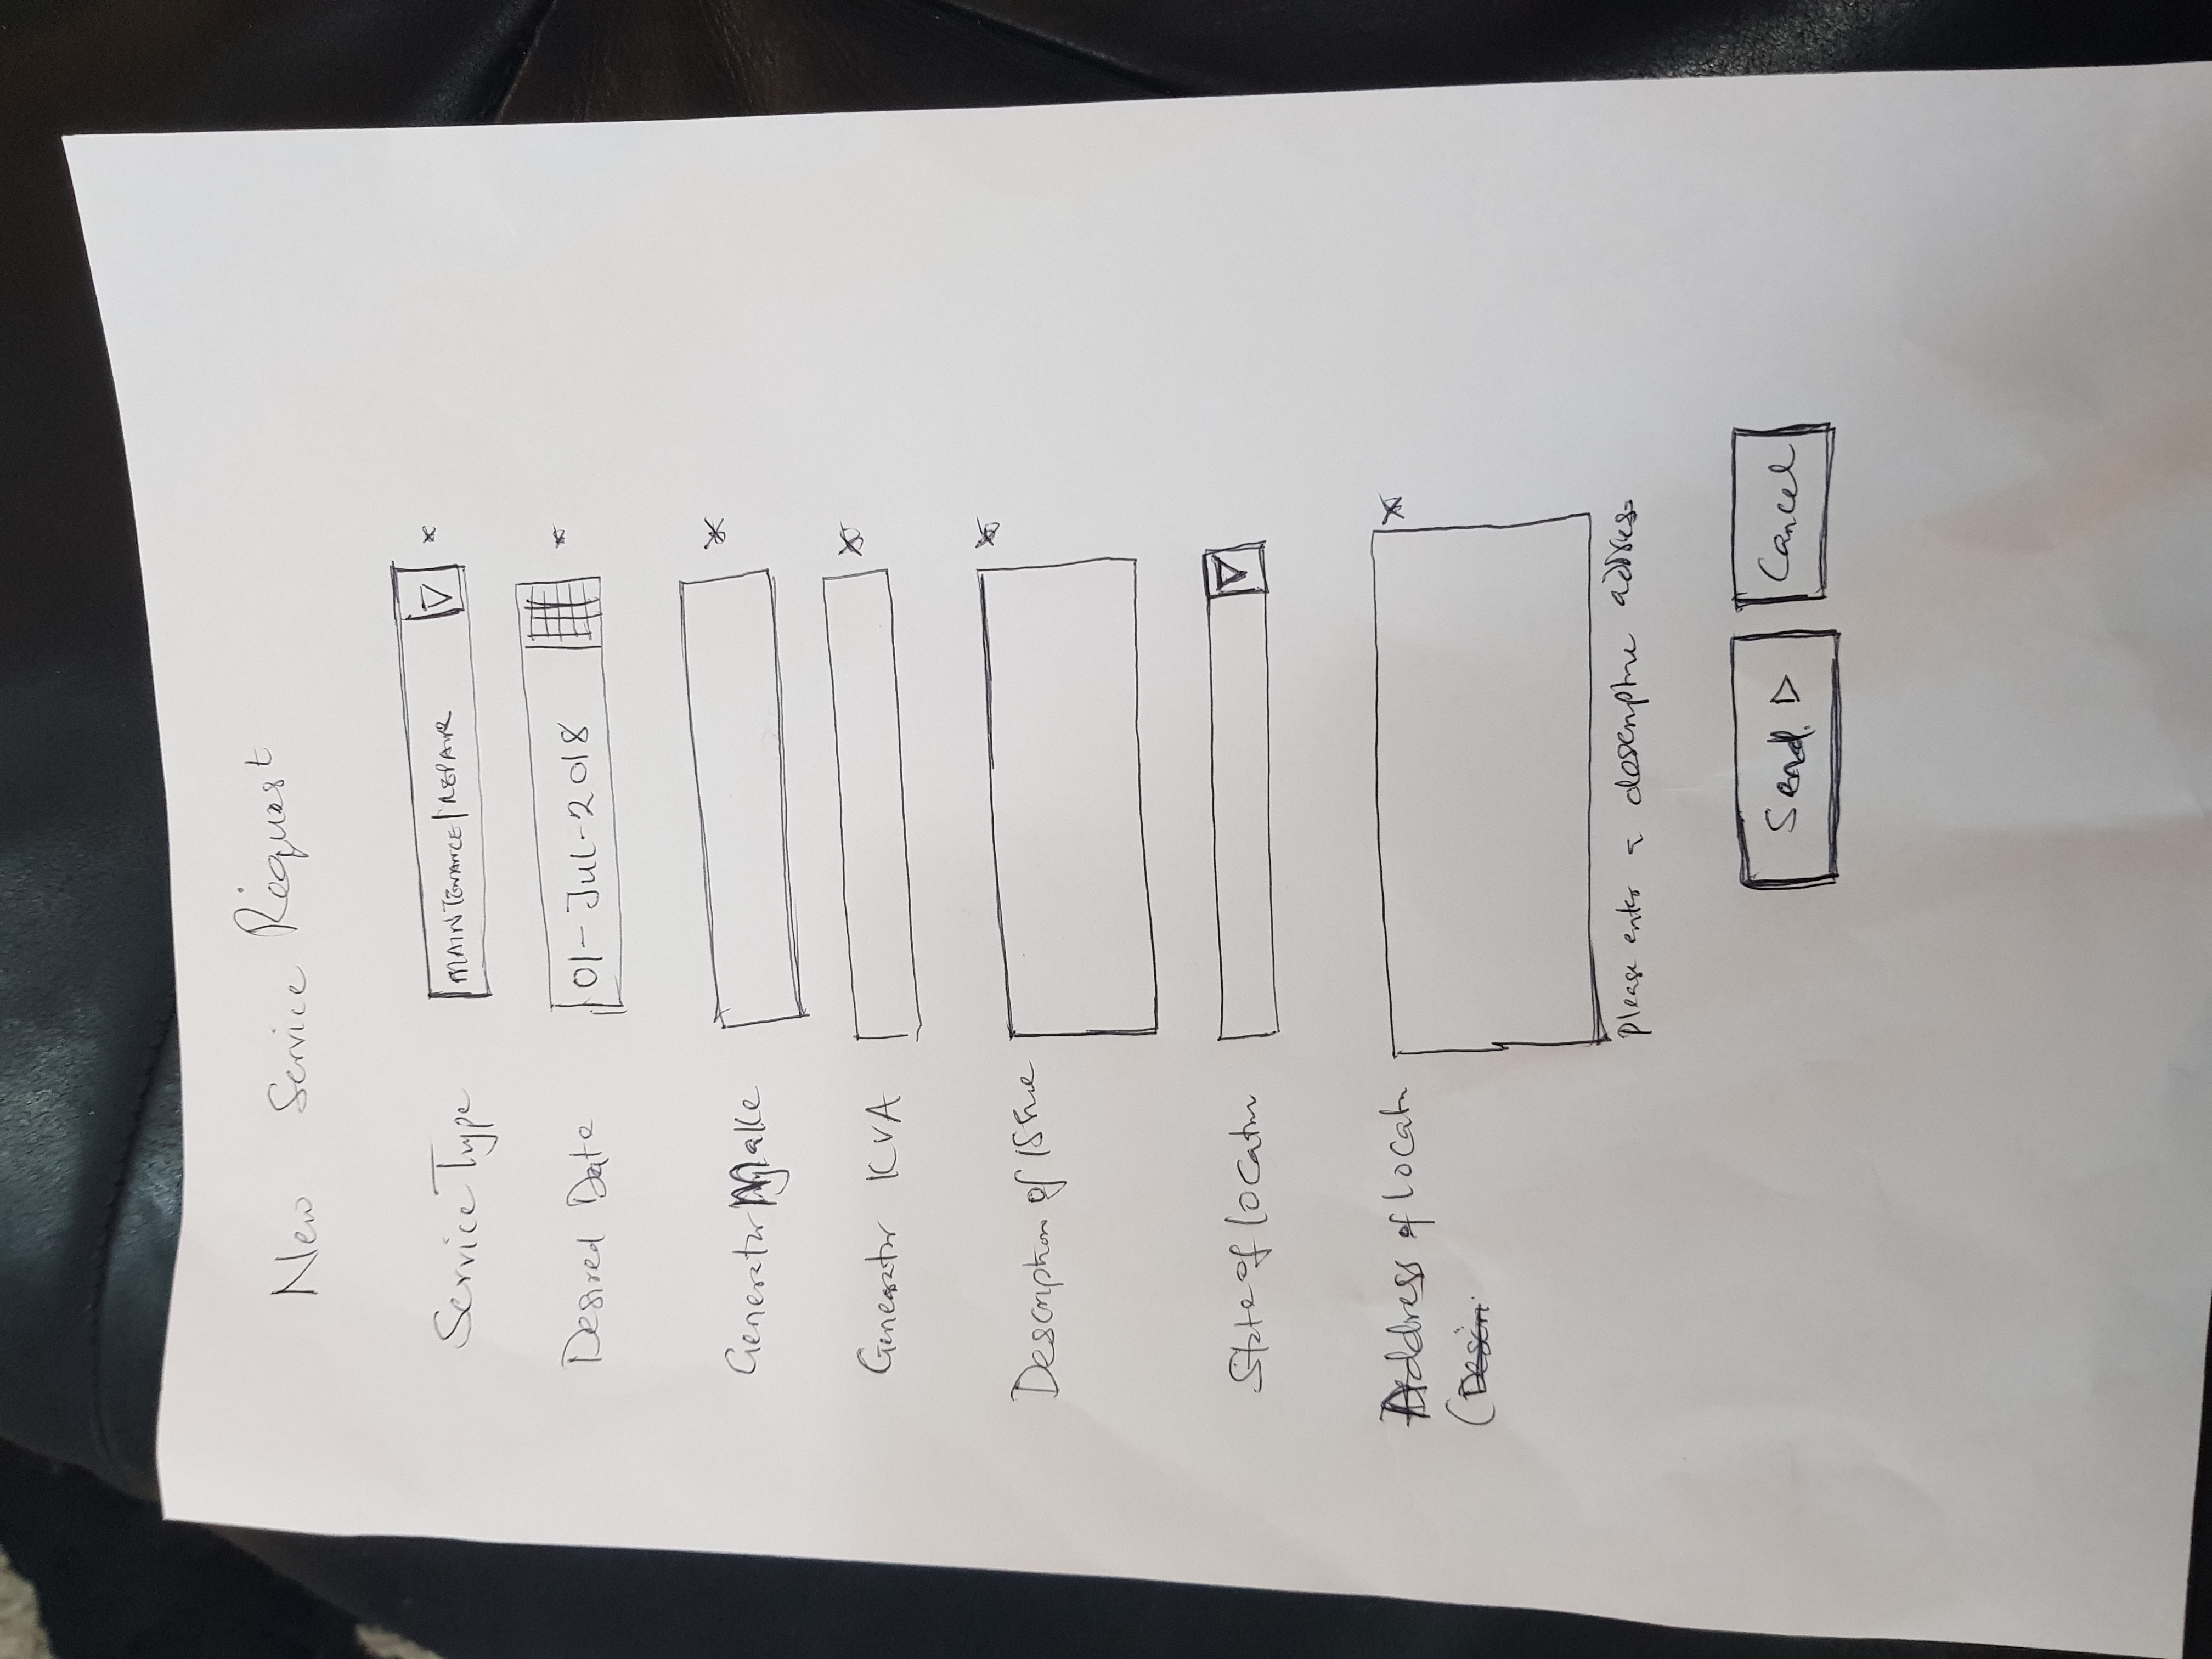 New Service Request
Service Type MAINTENANCE/REPAIR *
Desired Date 01-Jul-2018 *
Generator Make *
Generator KVA *
Description of Issue *
State of location
Address of location *
(
Please enter a descriptive address
Send ▷ Cancel